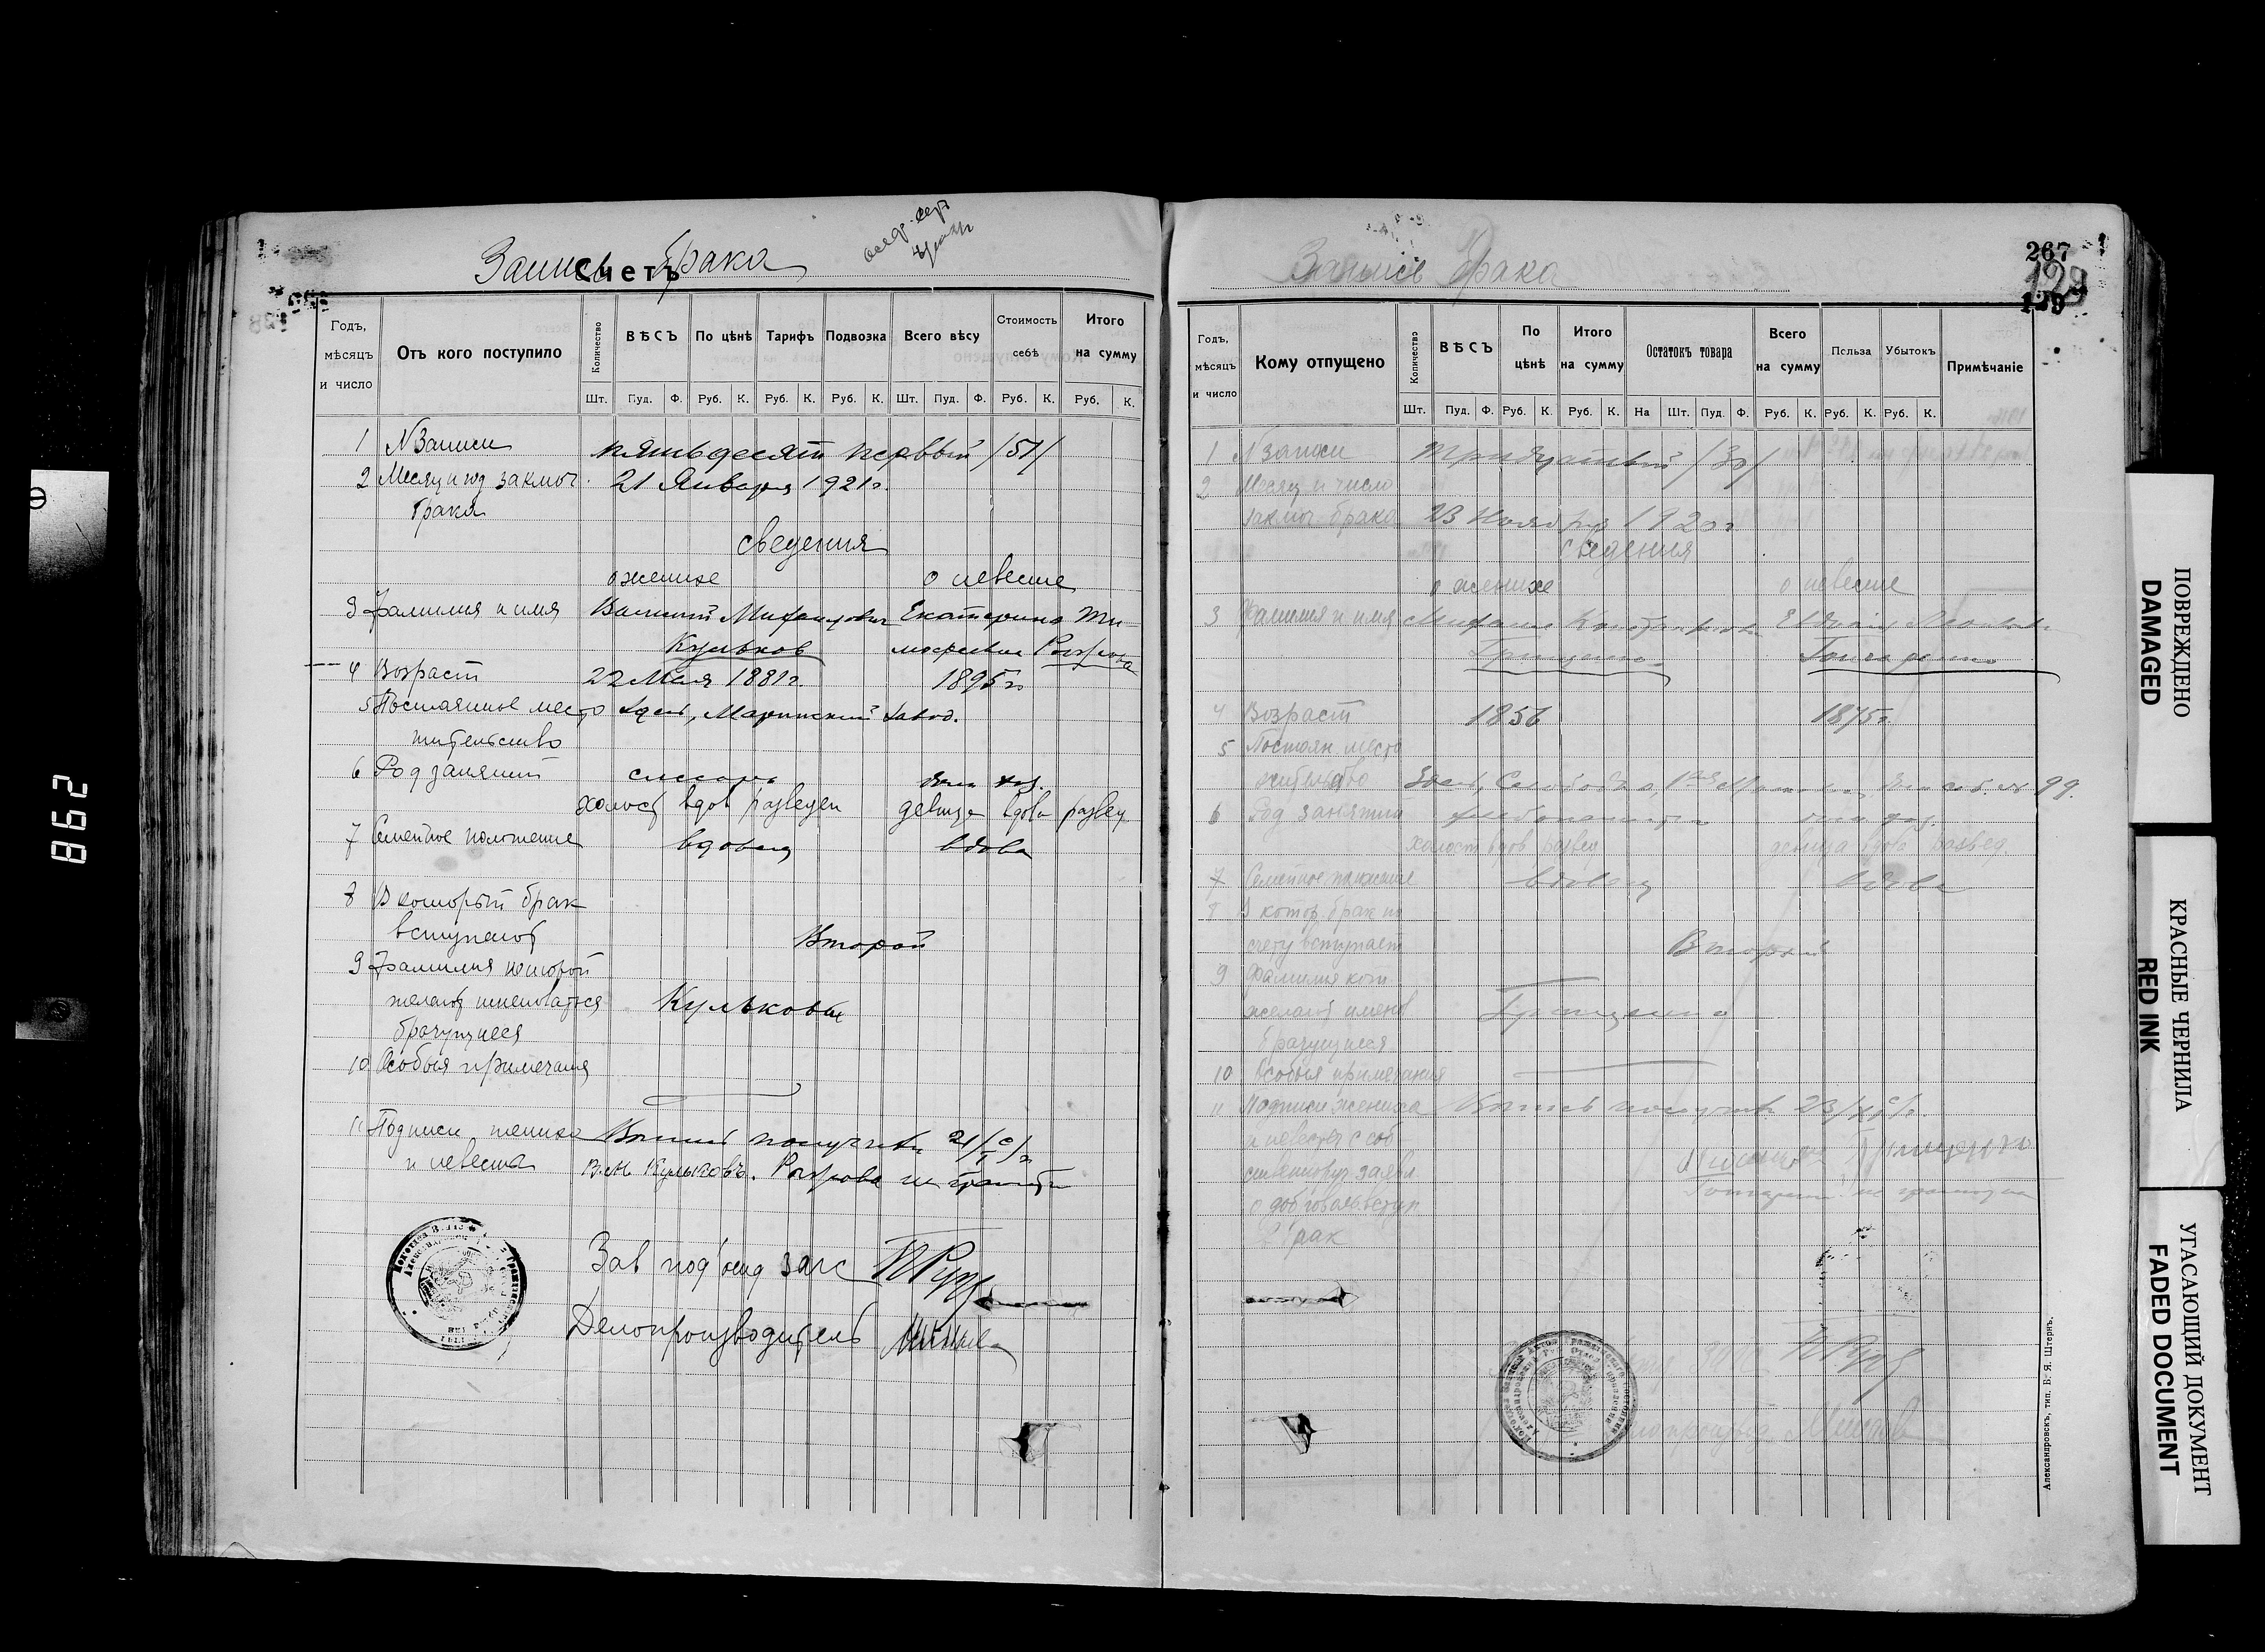 Запись брака
Счетъ
Годъ, мѣсяцъ и число
Отъ кого поступило
Количество
ВѢСЪ
По цѣнѣ
Тарифъ
Подвозка
Всего вѣсу
Стоимость себѣ
Итого на сумму
Шт. Пуд. Ф. Руб. К. Руб. К. Руб. К. Шт. Пуд. Ф. Руб. К. Руб. К.
1 N Записи пятьдесят первый /51/
2 Месяц и год заключ. 21 Января 1921 г.
брака
сведения
о женихе о невесте
3 Фамилия и имя Екатерина Ти-
Кульков
4 Возраст 22 Мая 1881 г. 1895 г.
5 Постоянное место Здесь, Завод.
жительство
6 Род занятий слесарь дом. хоз.
холост вдов разведен девица вдова развед.
7 Семейное положение вдовец вдова
8 В который брак
вступают Второй
9 Фамилия которой
желают именоваться Кульковы
брачущиеся
10 Особыя примечания
11 Подписи жениха получили 21/I с/г
и невесты В. М. Кульковъ. не грамотн
Зав под'отд загс
Делопроизводитель
267
129
129
Запись брака
Годъ, мѣсяцъ и число
Кому отпущено
Количество
ВѢСЪ
По цѣнѣ
Итого на сумму
Остатокъ товара
Всего на сумму
Польза
Убытокъ
Примѣчаніе
Шт. Пуд. Ф. Руб. К. Руб. К. На Шт. Пуд. Ф. Руб. К. Руб. К. Руб. К.
1 N записи тридцатый /30/
2 Месяц и число
заключ. брака 23 Ноября 1920 г
сведения
о женихе о невесте
3 Фамилия и имя
Грищенко Гончаренко
4 Возраст 1856 1875 г.
5 Постоян. место
жительство Здесь, Слободка, 99.
6 Род занятий дом. хоз.
холост вдов развед девица вдова развед.
7 Семейное положение вдовец вдова
8 В котор. брак по
счету вступает Второй
9 Фамилия кот.
желают именов. Грищенко
брачущиеся
10 Особыя примечания
11 Подписи жениха получили 23/XI с/г.
и невесты с соб-
ственноруч. заявл
о добровольн. вступ
в брак
Александровскъ, тип. Б. Я. Штернъ.
ПОВРЕЖДЕНО
DAMAGED
КРАСНЫЕ ЧЕРНИЛА
RED INK
УГАСАЮЩИЙ ДОКУМЕНТ
FADED DOCUMENT
298